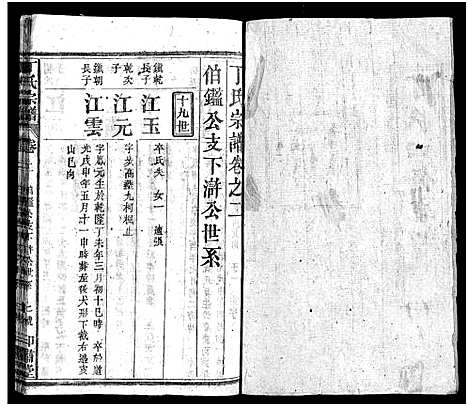 丁氏宗譜卷之二
伯鑑公支下滸公世系
十九世
鐵乾長子
江玉
卒氏失 女一 適張
乾次子
江元
字 高 九 柯 止
鐵朝長子
江雲
字鳳元生於乾隆丁未年三月初十巳時 卒於道
光戊申年五月十一申時葬 後犬形下截右邊亥
山巳向
氏宗譜
卷
伯鑑公支下滸公世系